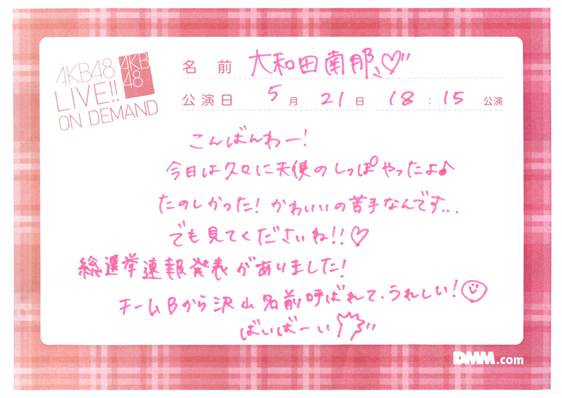 AKB48
LIVE!!
ON DEMAND
AKB
48
名 前 大和田南那♡
公演日 5月 21日 18:15 公演
こんばんわー!
今日は久々に天使のしっぽやったよ♪
たのしかった!かわいいの苦手なんです...
でも見てくださいね!!♡
総選挙速報発表がありました!
チームBから沢山名前呼ばれて、うれしい!
ばいばーい
DMM.com